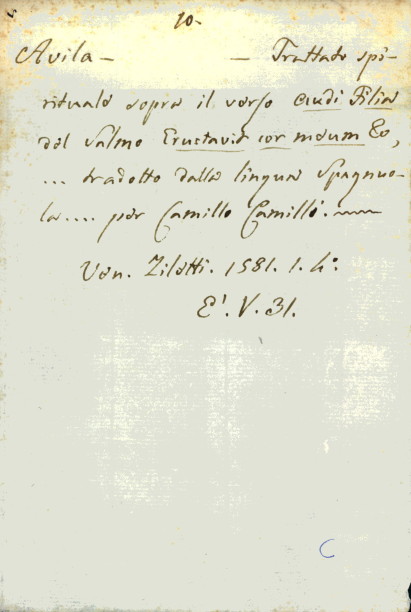 10.
Avila — — Trattato spi-
rituale sopra il verso audi Filia
del Salmo Eructavit cor meum &c,
... tradotto dalla lingua Spagnuo-
la .... per Camillo Camilli.
Ven. Ziletti. 1581. 1. 4°.
E'. V. 31.
C